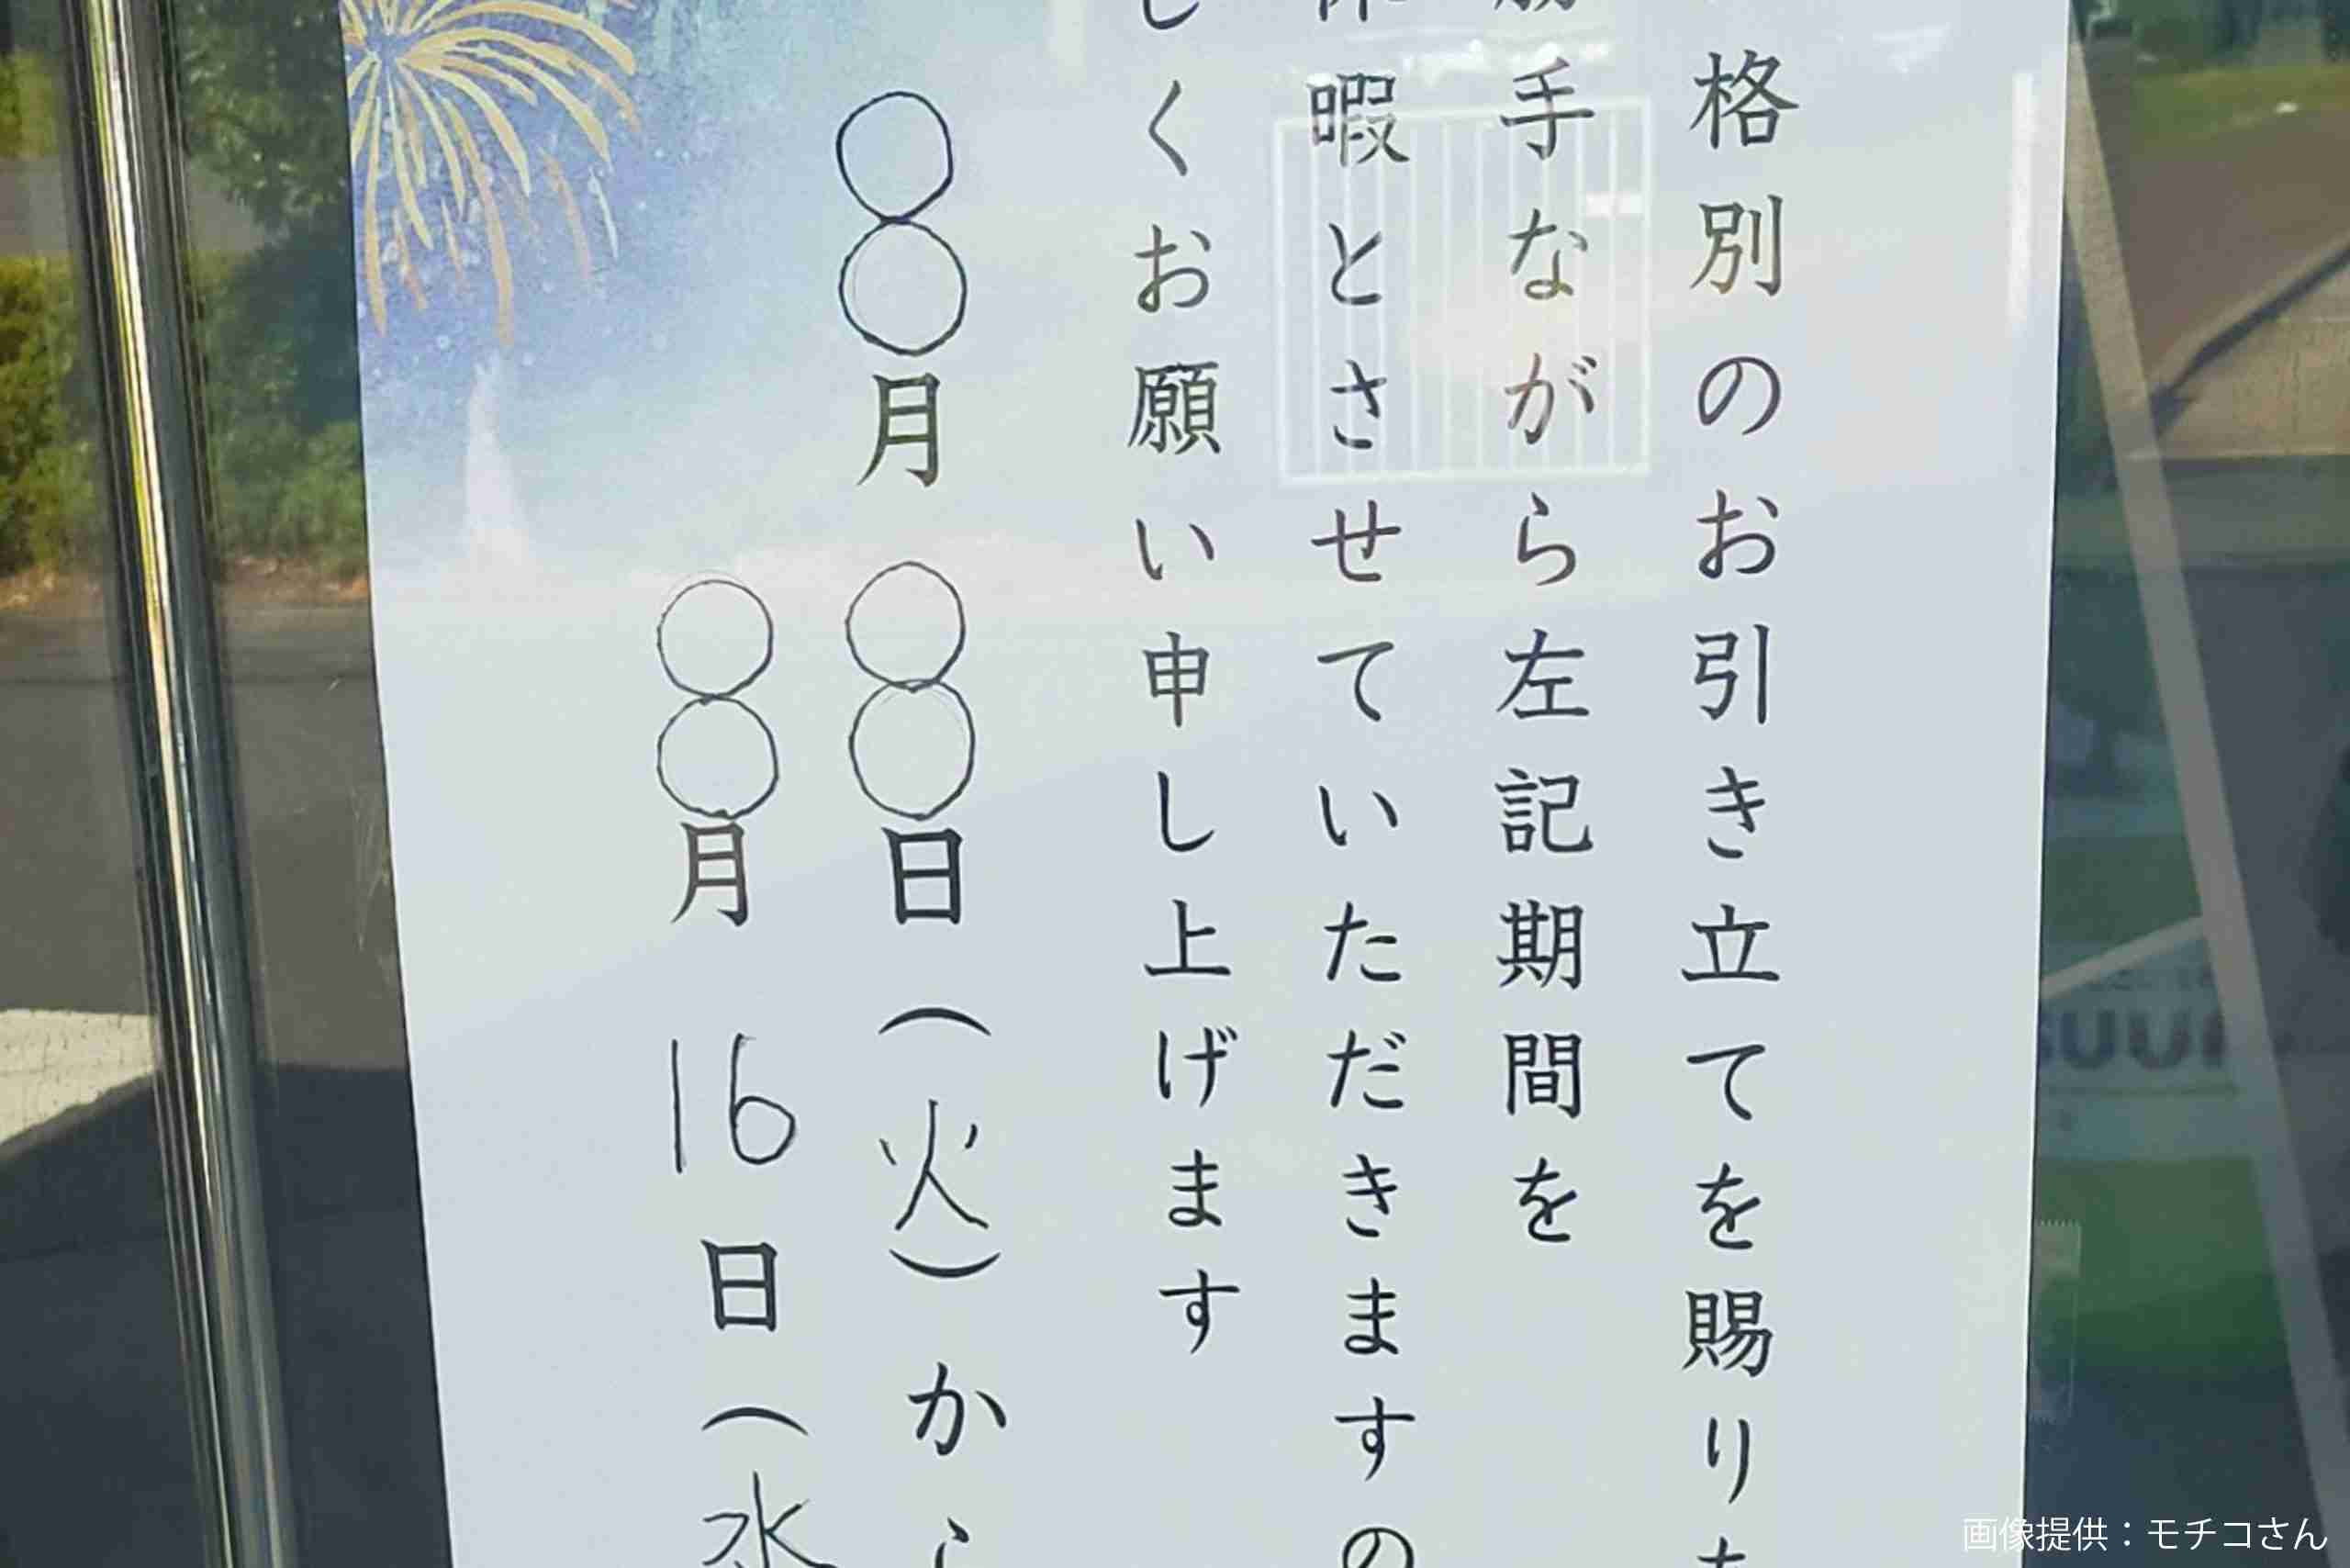 格別のお引き立てを賜り
手ながら左記期間を
暇とさせていただきますの
しくお願い申し上げます
〇〇月〇〇日（火）から
〇〇月16日（水
画像提供：モチコさん